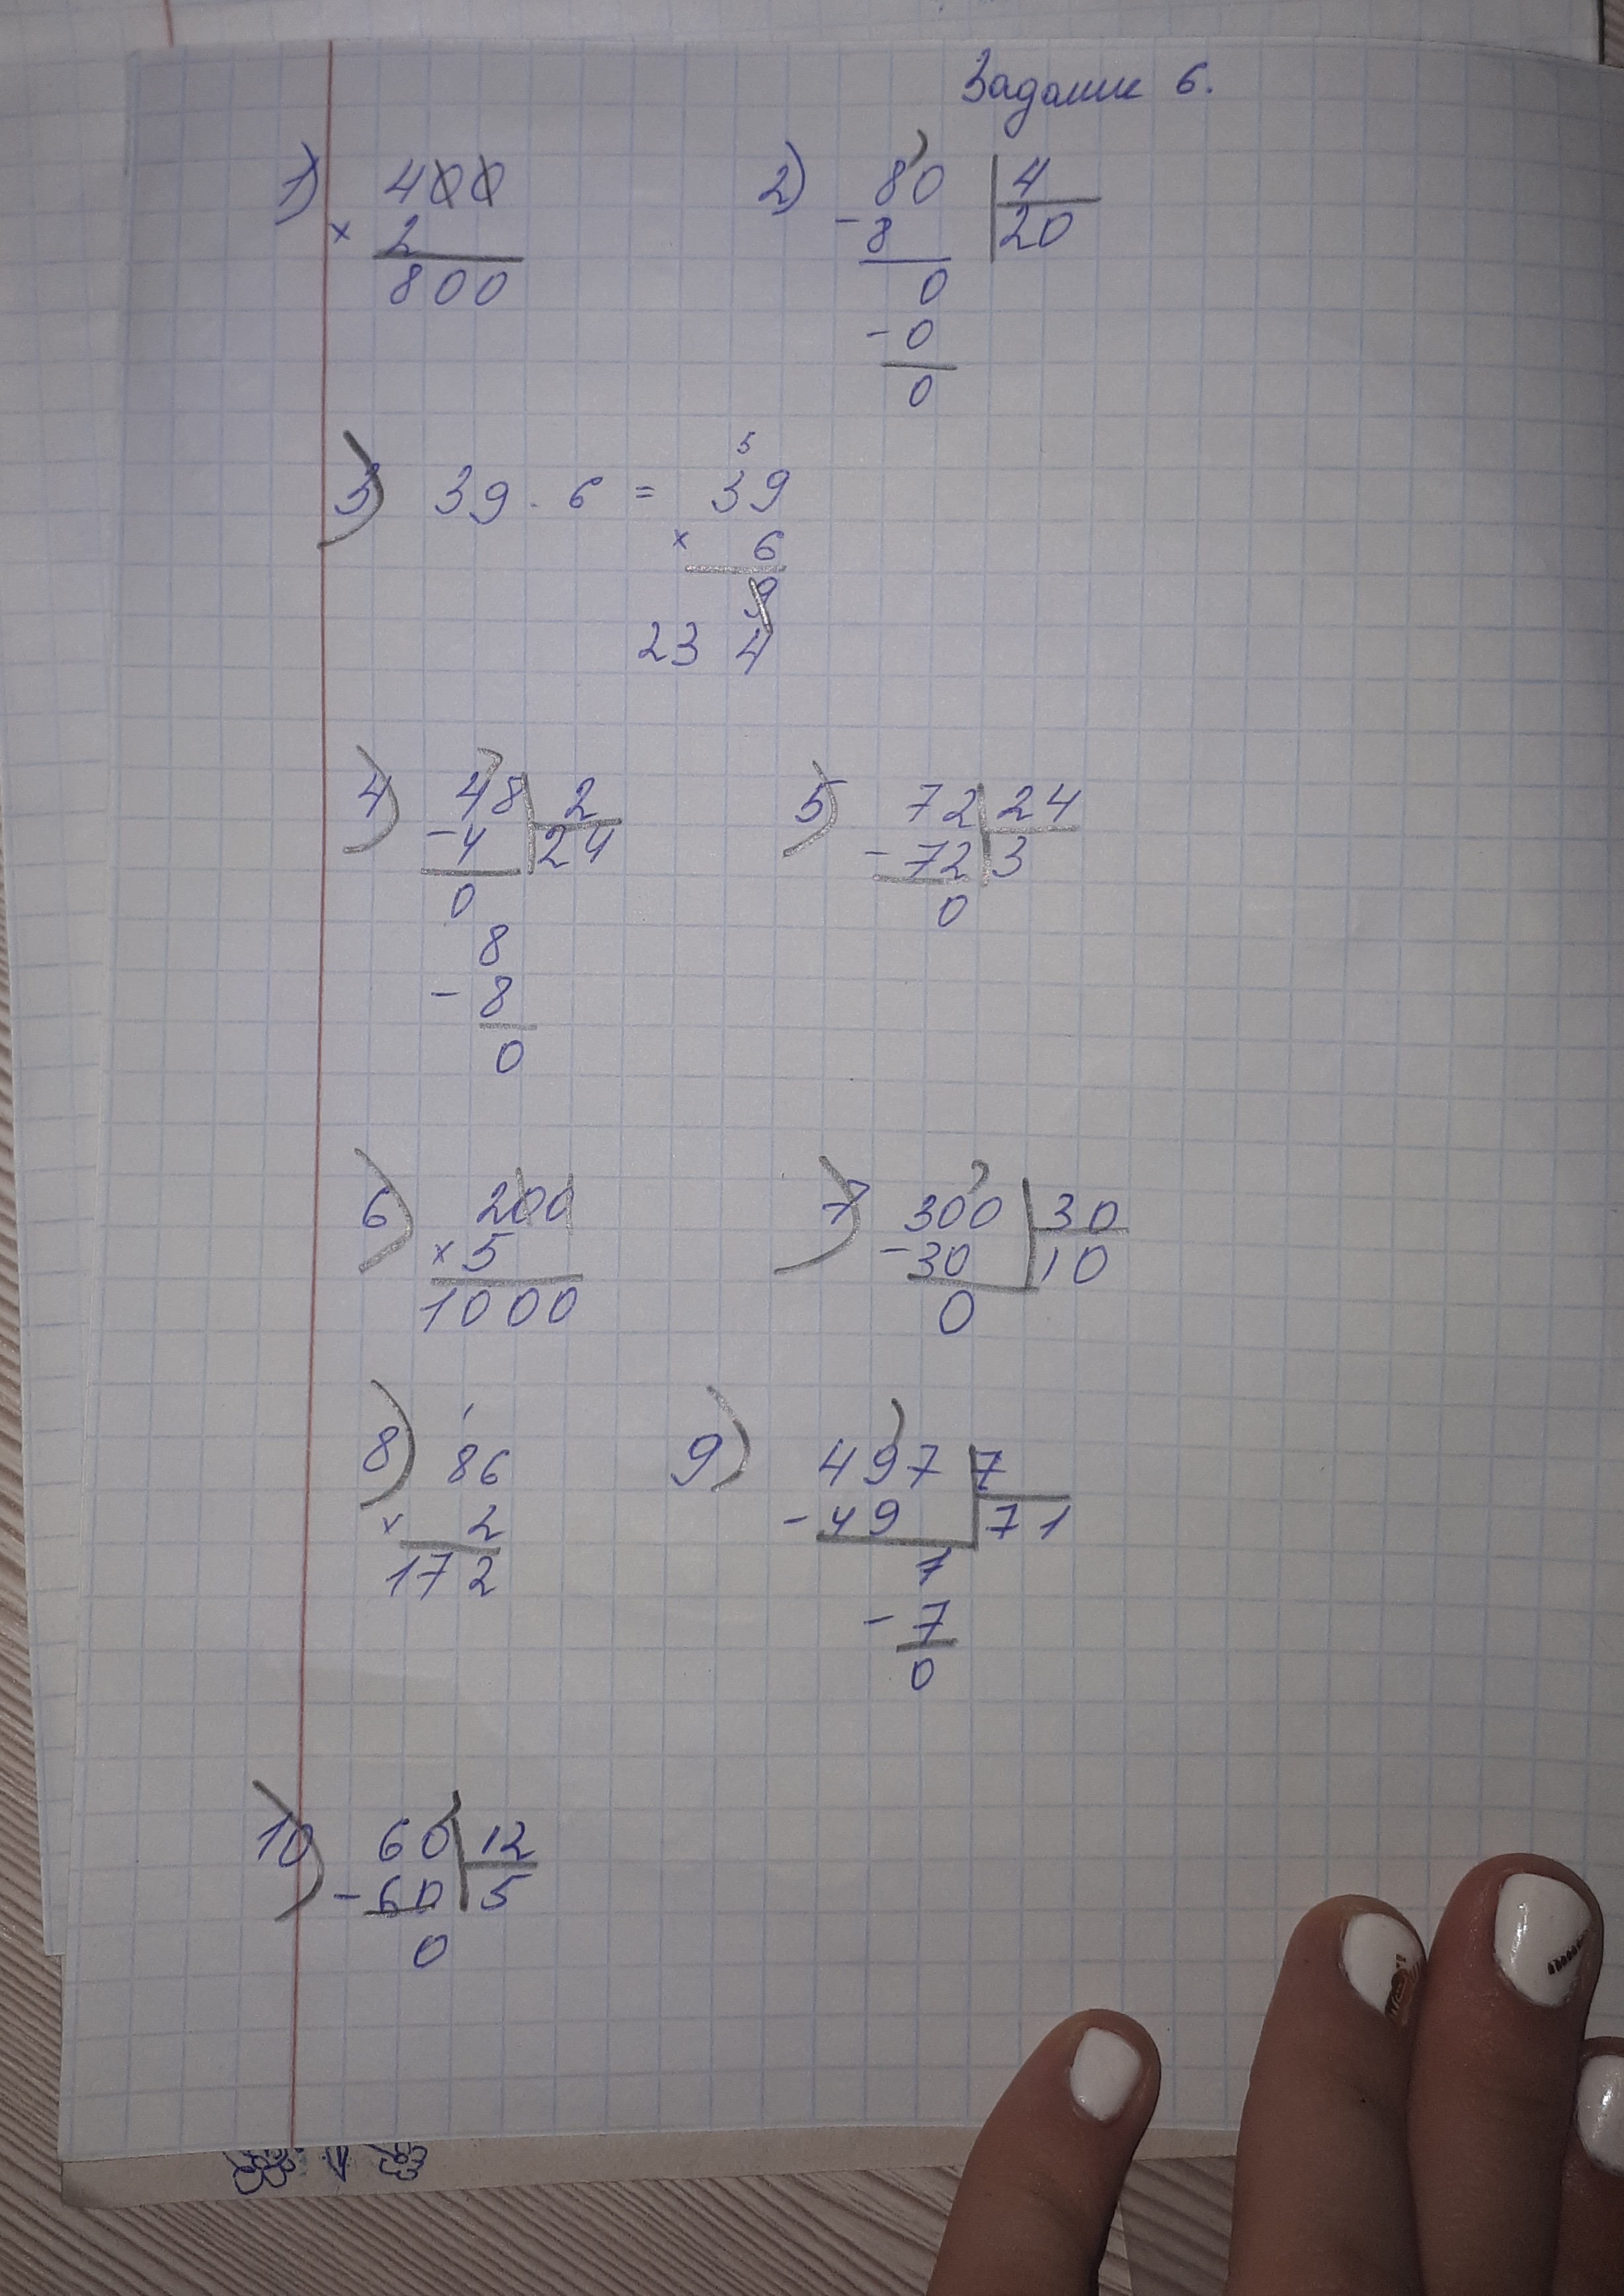 Задание 6.
1) 400 2) 80 | 4
× 2 - 8 20
800 0
- 0
0
5
3) 39 · 6 = 39
× 6
9
23 4
4) 48 | 2 5) 72 | 24
- 4 24 - 72 3
0 0
8
- 8
0
6) 200 7) 300 | 30
× 5 - 30 10
1000 0
8) 86 9) 497 | 7
× 2 - 49 71
172 7
- 7
0
10) 60 | 12
- 60 5
0